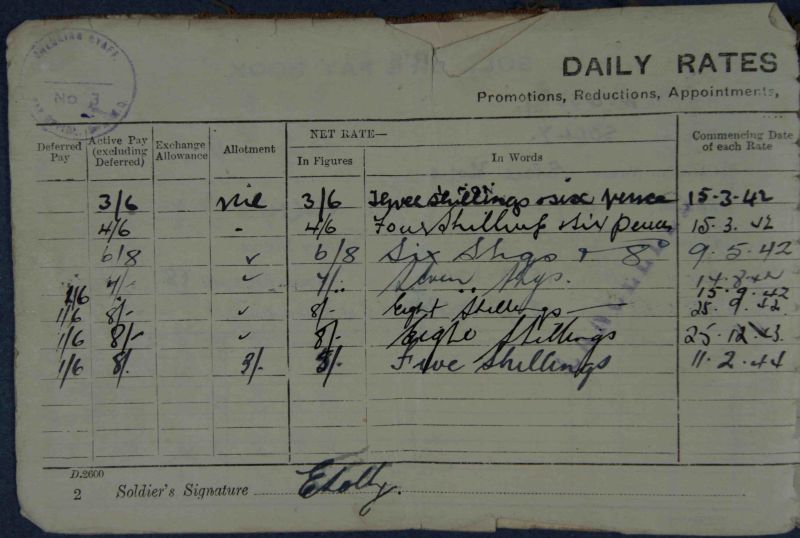 No 3
DAILY RATES
Promotions, Reductions, Appointments,
Deferred Pay Active Pay (excluding Deferred) Exchange Allowance Allotment NET RATE— In Figures In Words Commencing Date of each Rate
3/6 nil 3/6 Three shillings & six pence 15·3·42
4/6 - 4/6 Four Shillings & six pence 15·3·42
6/8 ✓ 6/8 Six Shgs & 8d 9·5·42
7/- ✓ 7/- Seven Shgs. 14·8·42
1/6 15·9·42
1/6 8/- ✓ 8/- Eight Shillings 25·9·42
1/6 8/- ✓ 8/- Eight Shillings 25·12·43
1/6 8/- 3/- 5/- Five Shillings 11·2·44
D.2600
2 Soldier's Signature